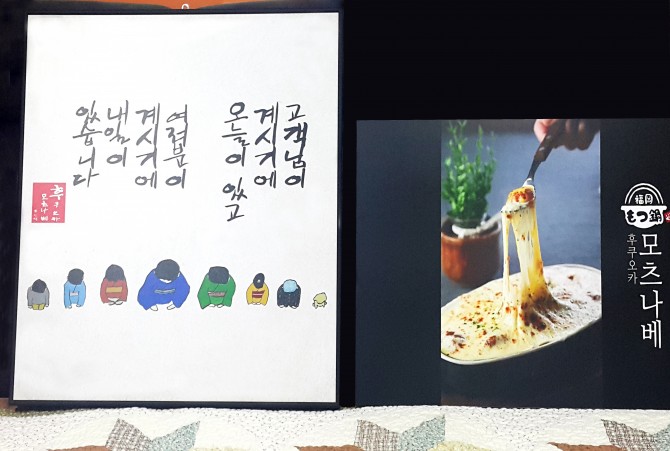 고객님이
계시기에
오늘이 있고
여러분이
계시기에
내일이
있습니다
후쿠오카
모츠나베
福岡
もつ鍋
모츠나베
후쿠오카